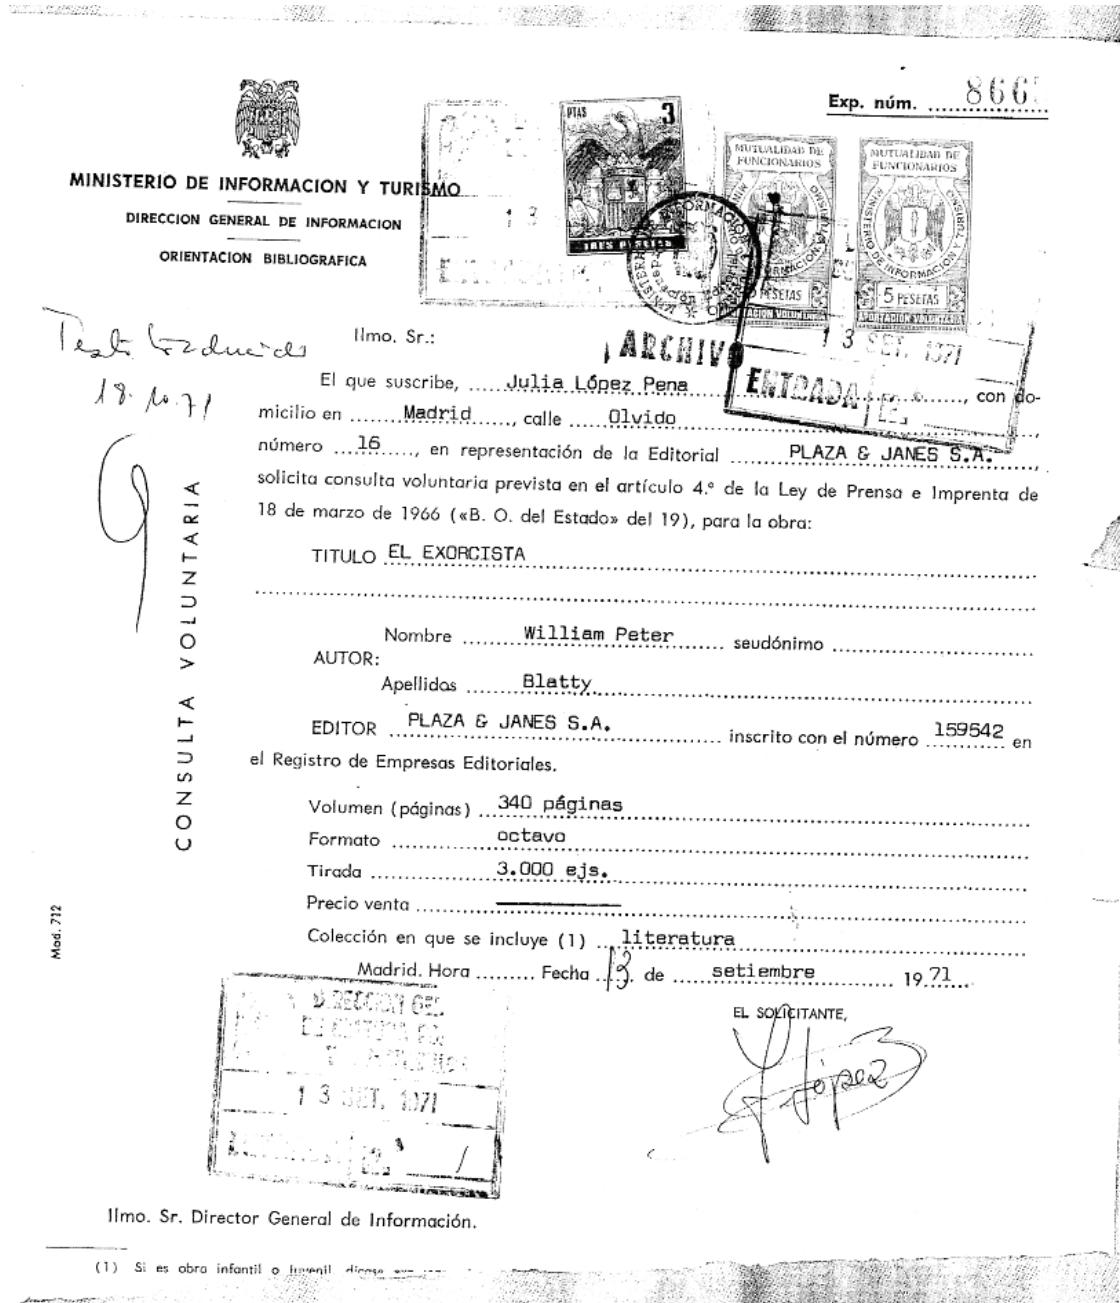 Exp. núm. 866
MINISTERIO DE INFORMACION Y TURISMO
DIRECCION GENERAL DE INFORMACION
ORIENTACION BIBLIOGRAFICA
PTAS 3
TRES PESETAS
MUTUALIDAD DE FUNCIONARIOS
MINISTERIO DE INFORMACION Y TURISMO
5 PESETAS
APORTACION VOLUNTARIA
MUTUALIDAD DE FUNCIONARIOS
MINISTERIO DE INFORMACION Y TURISMO
5 PESETAS
APORTACION VOLUNTARIA
13 SET. 1971
ENTRADA
ARCHIVO
18.10.71
Ilmo. Sr.:
El que suscribe, Julia López Pena, con do-
micilio en Madrid, calle Olvido,
número 16, en representación de la Editorial PLAZA & JANES S.A.,
solicita consulta voluntaria prevista en el artículo 4.º de la Ley de Prensa e Imprenta de
18 de marzo de 1966 («B. O. del Estado» del 19), para la obra:
CONSULTA VOLUNTARIA
TITULO EL EXORCISTA
Nombre William Peter seudónimo
AUTOR:
Apellidos Blatty
EDITOR PLAZA & JANES S.A. inscrito con el número 159542 en
el Registro de Empresas Editoriales.
Volumen (páginas) 340 páginas
Formato octavo
Tirada 3.000 ejs.
Precio venta
Colección en que se incluye (1) literatura
Madrid. Hora Fecha 13. de setiembre 19 71
Mod. 712
EL SOLICITANTE,
López
13 SET. 1971
Ilmo. Sr. Director General de Información.
(1) Si es obra infantil o juvenil